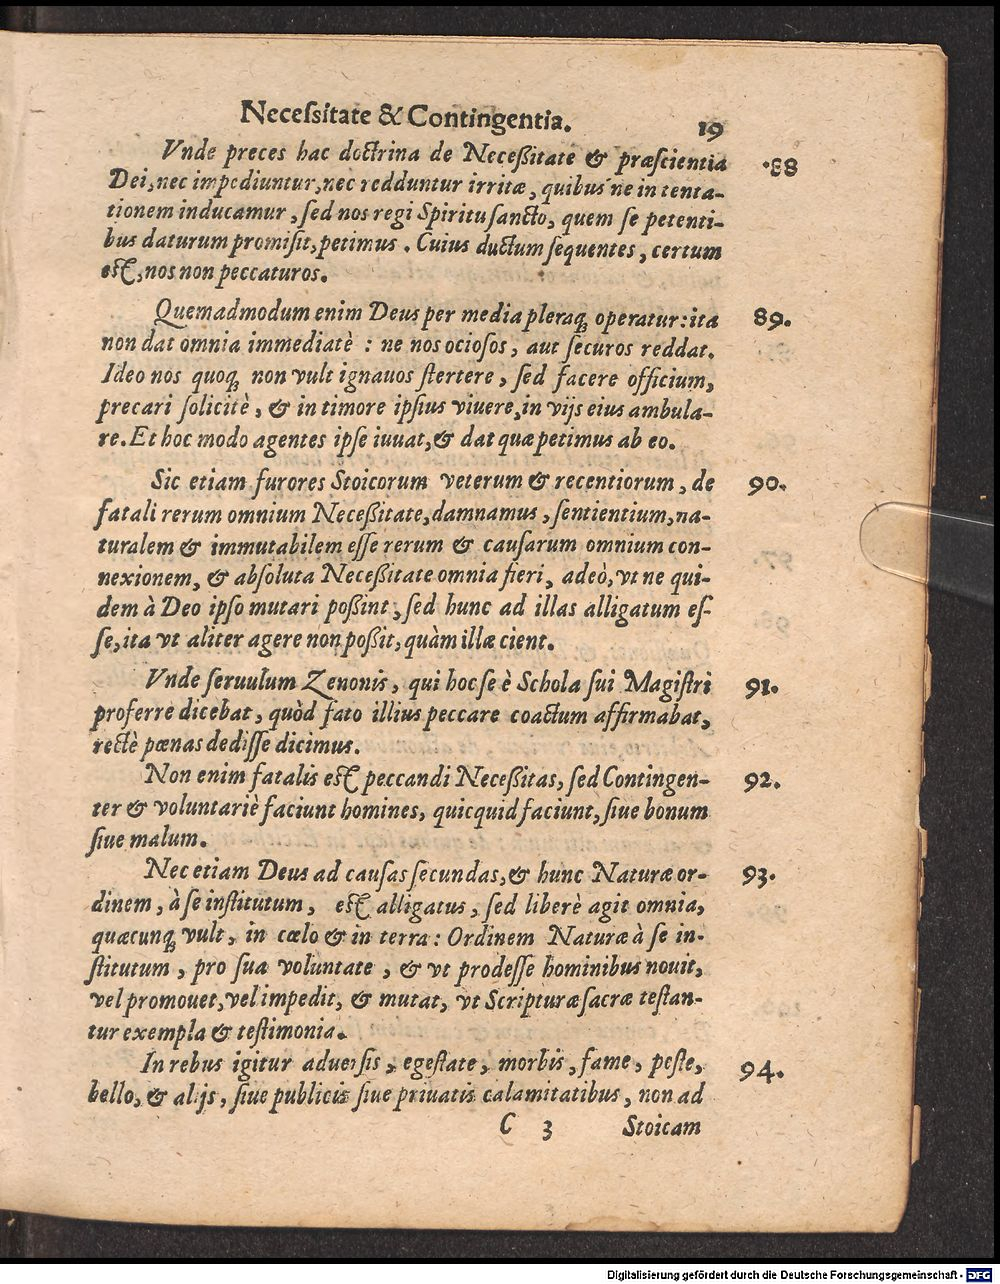 Neceſsitate & Contingentia. 19
Vnde preces hac doctrina de Neceßitate & præſcientia 88.
Dei, nec impediuntur, nec redduntur irritæ, quibus ne in tenta-
tionem inducamur, ſed nos regi Spiritu ſancto, quem ſe petenti-
bus daturum promiſit, petimus. Cuius ductum ſequentes, certum
eſt, nos non peccaturos.
Quemadmodum enim Deus per media pleraq́; operatur: ita 89.
non dat omnia immediatè : ne nos ocioſos, aut ſecuros reddat.
Ideo nos quoq́; non vult ignauos ſtertere, ſed facere officium,
precari ſolicitè, & in timore ipſius viuere, in vijs eius ambula-
re. Et hoc modo agentes ipſe iuuat, & dat quæ petimus ab eo.
Sic etiam furores Stoicorum veterum & recentiorum, de 90.
fatali rerum omnium Neceßitate, damnamus, ſentientium, na-
turalem & immutabilem eſſe rerum & cauſarum omnium con-
nexionem, & abſoluta Neceßitate omnia fieri, adeò, vt ne qui-
dem à Deo ipſo mutari poßint, ſed hunc ad illas alligatum eſ-
ſe, ita vt aliter agere non poßit, quàm illæ cient.
Vnde ſeruulum Zenonis, qui hoc ſe è Schola ſui Magiſtri 91.
proferre dicebat, quòd fato illius peccare coactum affirmabat,
rectè pœnas dediſſe dicimus.
Non enim fatalis eſt peccandi Neceßitas, ſed Contingen- 92.
ter & voluntariè faciunt homines, quicquid faciunt, ſiue bonum
ſiue malum.
Nec etiam Deus ad cauſas ſecundas, & hunc Naturæ or- 93.
dinem, à ſe inſtitutum, eſt alligatus, ſed liberè agit omnia,
quæcunq́; vult, in cœlo & in terra: Ordinem Naturæ à ſe in-
ſtitutum, pro ſua voluntate, & vt prodeſſe hominibus nouit,
vel promouet, vel impedit, & mutat, vt Scripturæ ſacræ teſtan-
tur exempla & teſtimonia.
In rebus igitur aduerſis, egeſtate, morbis, fame, peſte, 94.
bello, & alijs, ſiue publicis ſiue priuatis calamitatibus, non ad
C 3 Stoicam
Digitalisierung gefördert durch die Deutsche Forschungsgemeinschaft - DFG